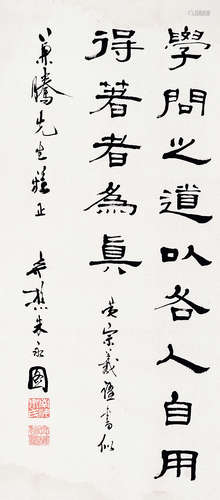 學問之道以各人自用
得著者為眞
黃宗羲語書似
騰先生雅正
樵朱永